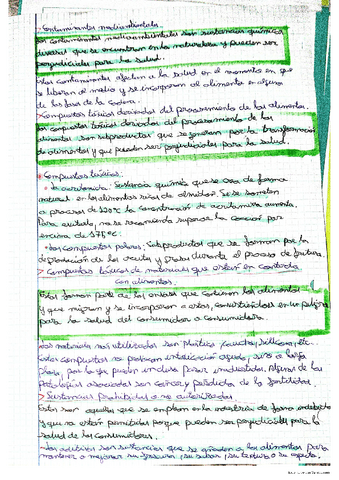 Contaminantes medioambientales.
Los contaminantes medioambientales son sustancias químicas
diversas que se encuentran en la naturaleza y pueden ser
perjudiciales para la salud.
Los contaminantes afectan a la salud en el momento en que
se liberan al medio y se incorporan al alimento en alguna
de las fases de la cadena.
Compuestos tóxicos derivados del procesamiento de los alimentos.
Los compuestos tóxicos derivados del procesamiento de los
alimentos son subproductos que se generan por la transformación
de alimentos y que pueden ser perjudiciales para la salud.
Compuestos tóxicos:
la acrilamida: Sustancia química que se crea de forma
natural en los alimentos ricos en almidón. Si se someten
a procesos de 120°C la concentración de acrilamida aumenta.
Para evitarlo, no se recomienda superar la cocción por
encima de 175°C.
Los compuestos polares: Subproductos que se forman por la
degradación de los aceites y grasas durante el proceso de fritura.
> Compuestos tóxicos de materiales que están en contacto
con alimentos.
Estos forman parte de los envases que contienen los alimentos
y que migran y se incorporan a estos, convirtiéndose en un peligro
para la salud del consumidor o consumidora.
Los materiales más utilizados son plásticos, caucho, silicona, etc.
Estos compuestos no provocan intoxicación aguda, sino a largo
plazo, por lo que pueden incluso pasar inadvertidos. Algunas de las
patologías asociadas son cáncer y pérdida de la fertilidad.
> Sustancias prohibidas o no autorizadas.
Estas son aquellas que se emplean en la industria de forma indebida
y que no están permitidas porque pueden ser perjudiciales para la
salud de los consumidores.
Los aditivos son sustancias que se añaden a los alimentos para
mantener o mejorar su frescura, su sabor, su textura o su aspecto.